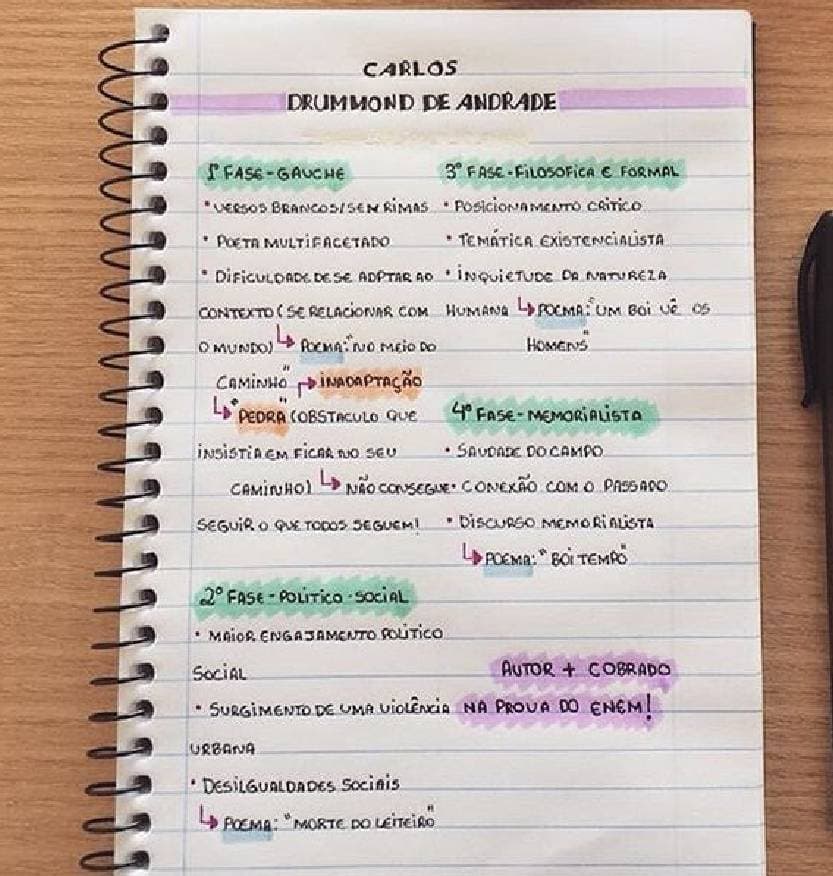 CARLOS
DRUMMOND DE ANDRADE
1º FASE - GAUCHE
• VERSOS BRANCOS/SEM RIMAS
• POETA MULTIFACETADO
• DIFICULDADE DE SE ADPTAR AO
CONTEXTO (SE RELACIONAR COM
O MUNDO) ↳ POEMA: "NO MEIO DO
CAMINHO" ↱ INADAPTAÇÃO
↳ "PEDRA" (OBSTACULO QUE
INSISTIA EM FICAR NO SEU
CAMINHO) ↳ NÃO CONSEGUE
SEGUIR O QUE TODOS SEGUEM!
2º FASE - POLITICO - SOCIAL
• MAIOR ENGAJAMENTO POLITICO
SOCIAL
• SURGIMENTO DE UMA VIOLÊNCIA
URBANA
• DESILGUALDADES SOCIAIS
↳ POEMA: "MORTE DO LEITEIRO"
3º FASE - FILOSOFICA E FORMAL
• POSICIONAMENTO CRITICO
• TEMÁTICA EXISTENCIALISTA
• INQUIETUDE DA NATUREZA
HUMANA ↳ POEMA: "UM BOI VÊ OS
HOMENS"
4º FASE - MEMORIALISTA
• SAUDADE DO CAMPO
• CONEXÃO COM O PASSADO
• DISCURSO MEMORIALISTA
↳ POEMA: "BOI TEMPO"
AUTOR + COBRADO
NA PROVA DO ENEM!